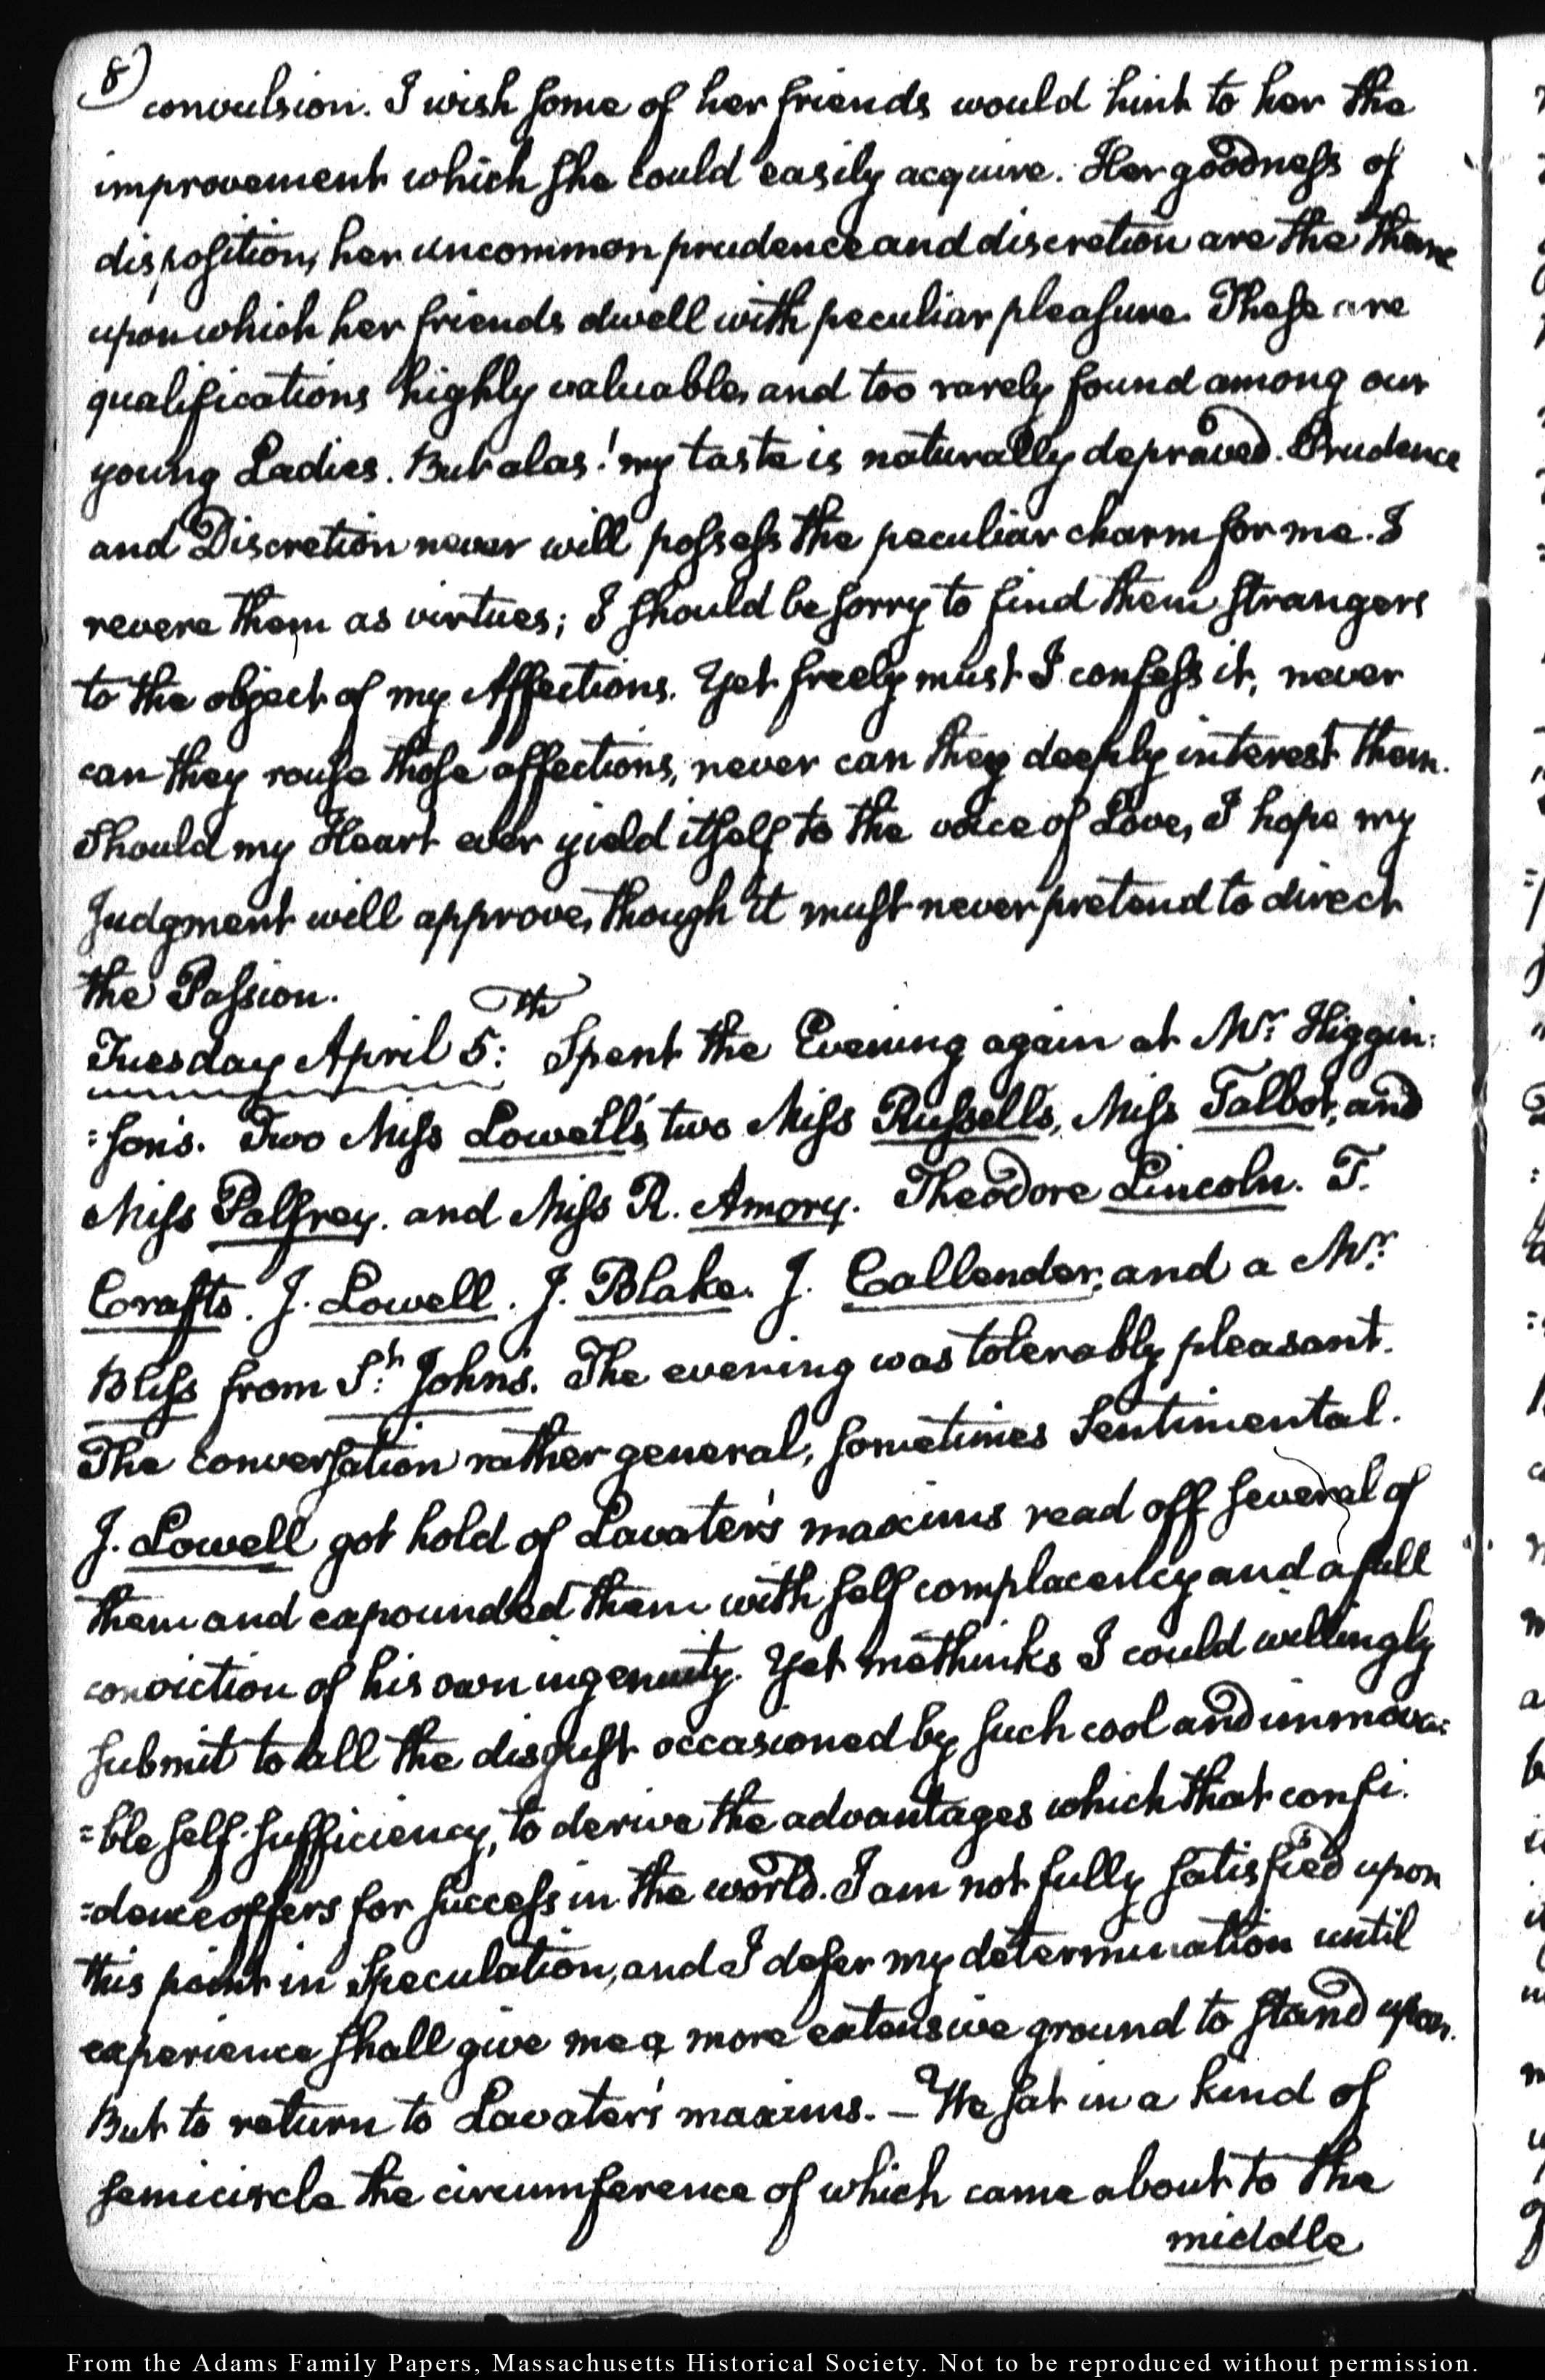 8)
convulsion. I wish some of her friends would hint to her the
improvement which she could easily acquire. Her goodness of
disposition, her uncommon prudence and discretion are the theme
upon which her friends dwell with peculiar pleasure. These are
qualifications highly valuable, and too rarely found among our
young Ladies. But alas! my taste is naturally depraved. Prudence
and Discretion never will possess the peculiar charm for me. I
revere them as virtues; I should be sorry to find them strangers
to the object of my Affections. Yet freely must I confess it, never
can they rouse those affections, never can they deeply interest them.
Should my Heart ever yield itself to the voice of Love, I hope my
Judgment will approve, though it must never pretend to direct
the Passion.
Tuesday April 5:th Spent the Evening again at Mr. Higgin:
:son's. Two Miss Lowell's, two Miss Russells, Miss Talbot, and
Miss Palfrey. and Miss R. Amory. Theodore Lincoln. T.
Crafts. J. Lowell. J. Blake. J. Callender, and a Mr.
Bliss from St. John's. The evening was tolerably pleasant.
The conversation rather general, sometimes Sentimental.
J. Lowell got hold of Lavater's maxims read off several of
them and expounded them with self complacency and a full
conviction of his own ingenuity. Yet methinks I could willingly
submit to all the disgust occasioned by such cool and immova=
=ble self-sufficiency, to derive the advantages which that confi.
=dence offers for success in the world. I am not fully satisfied upon
this point in Speculation, and I defer my determination until
experience shall give me a more extensive ground to stand upon.
But to return to Lavater's maxims. — We sat in a kind of
semicircle the circumference of which came about to the
middle
From the Adams Family Papers, Massachusetts Historical Society. Not to be reproduced without permission.